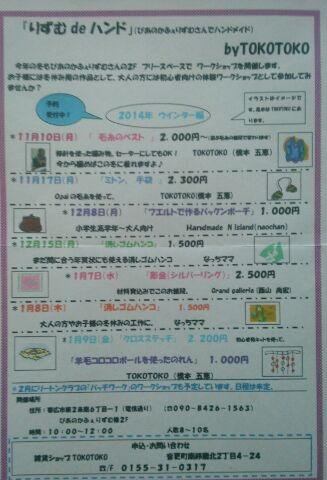 「りずむ de ハンド」(ぴあのかふぇりずむさんでハンドメイド)
byTOKOTOKO
今年の冬もぴあのかふぇりずむさんの2F フリースペースで ワークショップを開催します。
お子様には冬休み用の作品として、大人の方には初心者向けの体験ワークショップとして参加してみ
ませんか?
予約
受付中!
2014年 ウインター編
*11月10日(月) 「 毛糸のベスト 」 2.000円~
棒針を使った編み物、セーターにしてもOK! TOKOTOKO(橋本 五恵)
今から編めばこの冬に着れますよ。
*11月17日(月) 「ミトン、 手袋 」 2.300円
Opalの毛糸を使って、 TOKOTOKO(橋本 五恵)
*12月8日(月) 「フエルトで作るパッケンポーチ」 1.000円
小学生高学年~大人向け Handmade N island(naochan)
12月15日(月) 「消しゴムハンコ」 1.500円
まだ間に合う年賀状にも使える消しゴムハンコ なっちママ
*1月7日(水) 「彫金(シルバーリング)」 2.500円
材料費込みでこのお値段。 Grand galleria(西山 尚宏)
*1月8日(木) 「消しゴムハンコ」 1.500円
大人の方やお子様の冬休みの工作に、 なっちママ
*1月9日(金) 「クロスステッチ」 2.200円 初心者様キットを使って、
「羊毛コロコロボールを使ったのれん」 1.000円
TOKOTOKO(橋本 五恵)
*2月にリートンクラブの「パッチワーク」のワークショップも予定しています。日程は未定。
開催場所
住所:帯広市東2条南6丁目-1(電信通り) (☎090-8426-1563)
ぴあのかふぇりずむ様2F
時間:10:00~12:00 人数8~10名
申込・お問い合わせ
雑貨ショップTOKOTOKO 音更町南鈴蘭北2丁目4-24
☎/F 0155-31-0317